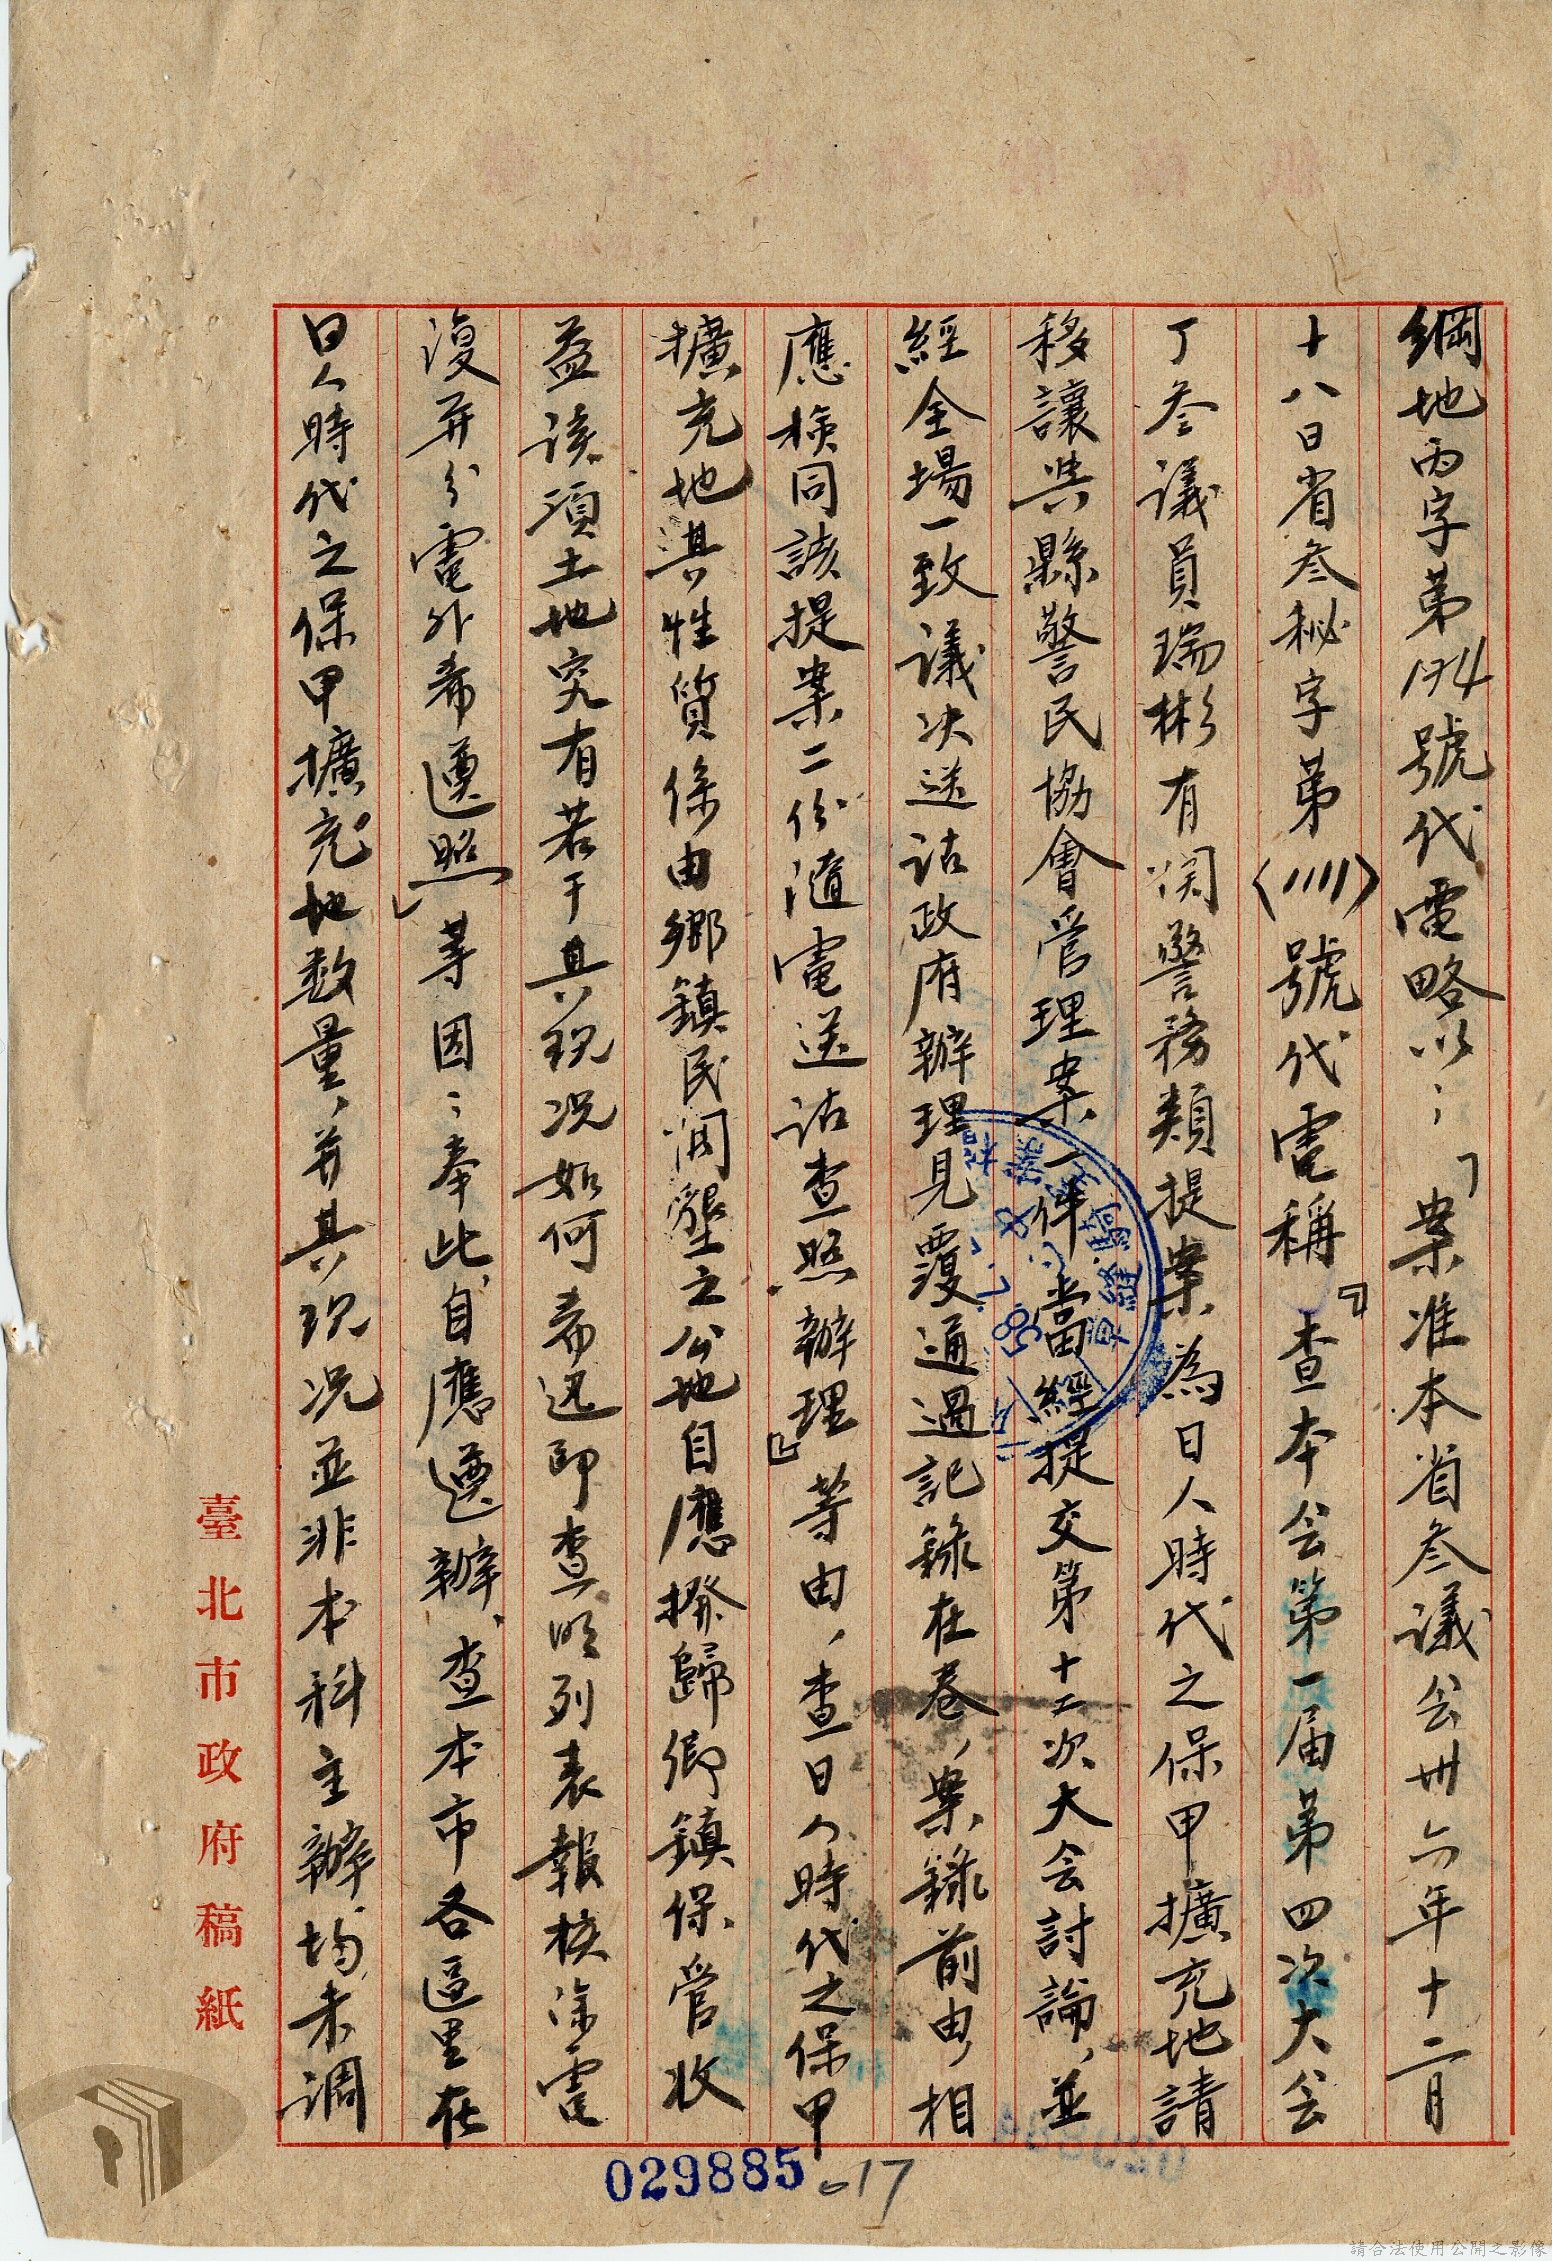 綱地丙字第174號代電略以：「案准本省參議会卅六年十二月
十八日省參秘字第（1111）號代電稱『查本会第一届第四次大会
丁參議員瑞彬有関警務類提案為日人時代之保甲擴充地請
移讓與縣警民協會管理案一件當經提交第十二次大会討論，並
經全場一致議决送請政府辦理見覆通過記錄在卷，案錄前由，相
應檢同該提案二份隨電送請查照辦理』等由，查日人時代之保甲
擴充地其性質係由鄉鎮民開墾之公地自應撥歸鄉鎮保管收
益該項土地究有若干其現况如何希迅即查明列表報核除電
復并分電外希遵照」等因：奉此，自應遵辦，查本市各區里在
日人時代之保甲擴充地数量，并其現况並非本科主辦，均未調
臺北市政府稿紙
騎縫章
029885
17
請合法使用公開之影像